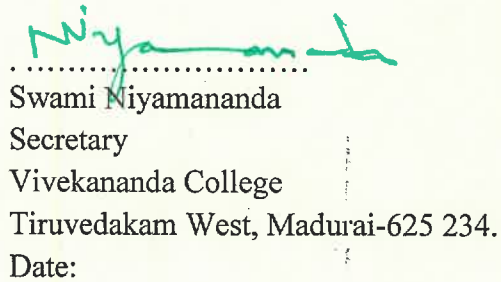 Niyamananda
....................................
Swami Niyamananda
Secretary
Vivekananda College
Tiruvedakam West, Madurai-625 234.
Date: